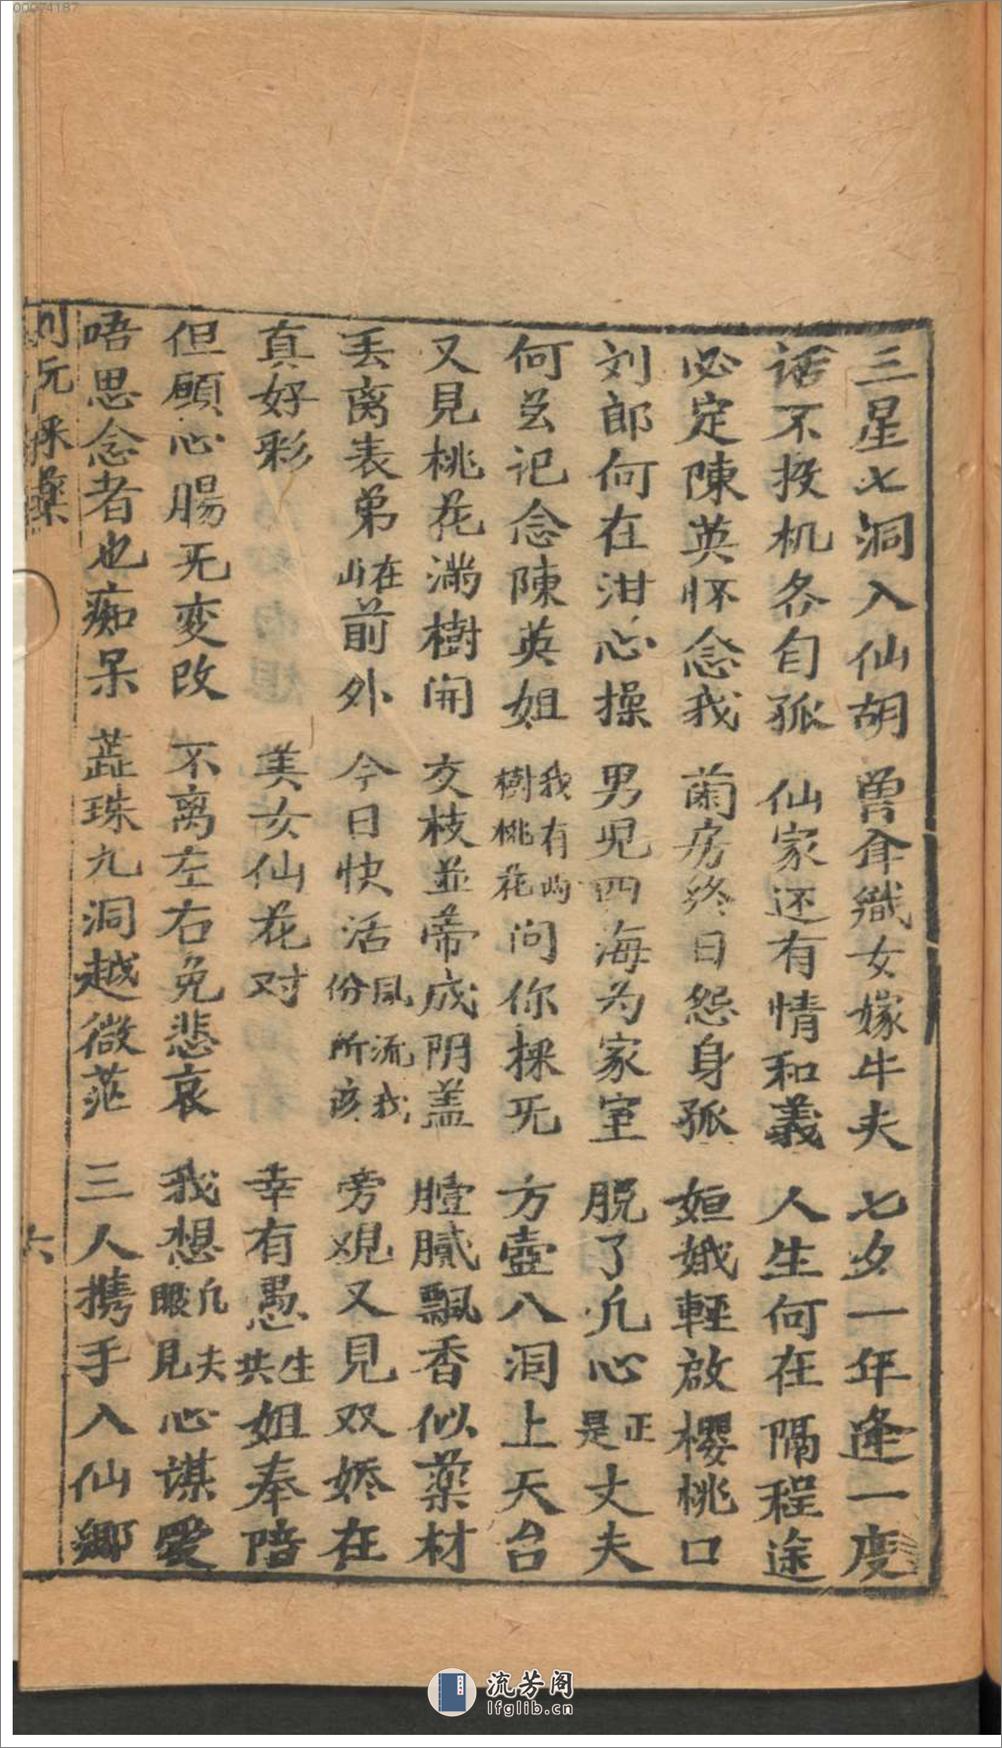 三星七洞入仙胡　曾耷織女嫁牛夫　七夕一年逢一度
话不投机各自孤　仙家还有情和義　人生何在隔程途
必定陳英怀念我　蘭房終日怨身孤　姮娥輕啟櫻桃口
刘郎何在泔心操　男児四海为家室　脱了凢心正是丈夫
何苂记念陳英姐　我有屿樹桃花问你採旡　方壺八洞上天台
又見桃花满樹開　交枝並蒂成阴盖　膻腻飄香似葯材
丢离表弟在山前外　今日快活風流我份所該　旁观又見双娇在
真好彩　美女仙花对　幸有愚生共姐奉陪
但願心腸旡变改　不离左右免悲哀　我想凢夫眼見心谋爱
唔思念者也痴呆　蕋珠九洞越微茫　三人携手入仙鄉
刘阮採藥
六
00074187
流芳阁
lfglib.cn